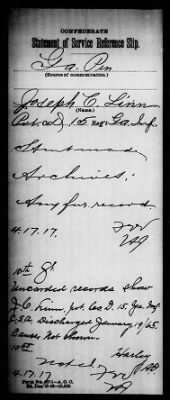 CONFEDERATE
Statement of Service Reference Slip.
Ga. Pen
(Source of communication.)
Joseph C. Linn
(Name.)
Pvt. Co D, 15 Reg. Ga. Inf
Archives:
Any fur. record
4.17.17.
10th Gt.
Uncarded records show
J. C. Linn, pvt. Co D. 15. Ga. Inf
C.S.A. Discharged January 19/65.
Cause not shown.
Harley
4.17.17